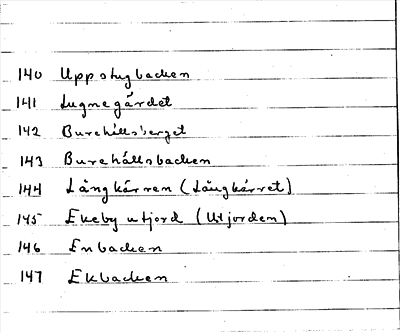 140 Uppstugbacken
141 Lugnegärdet
142 Burehällsberget
143 Burehällsbacken
144 Långkärren (Långkärret)
145 Ekeby utjord (Utjorden)
146 Enbacken
147 Ekbacken